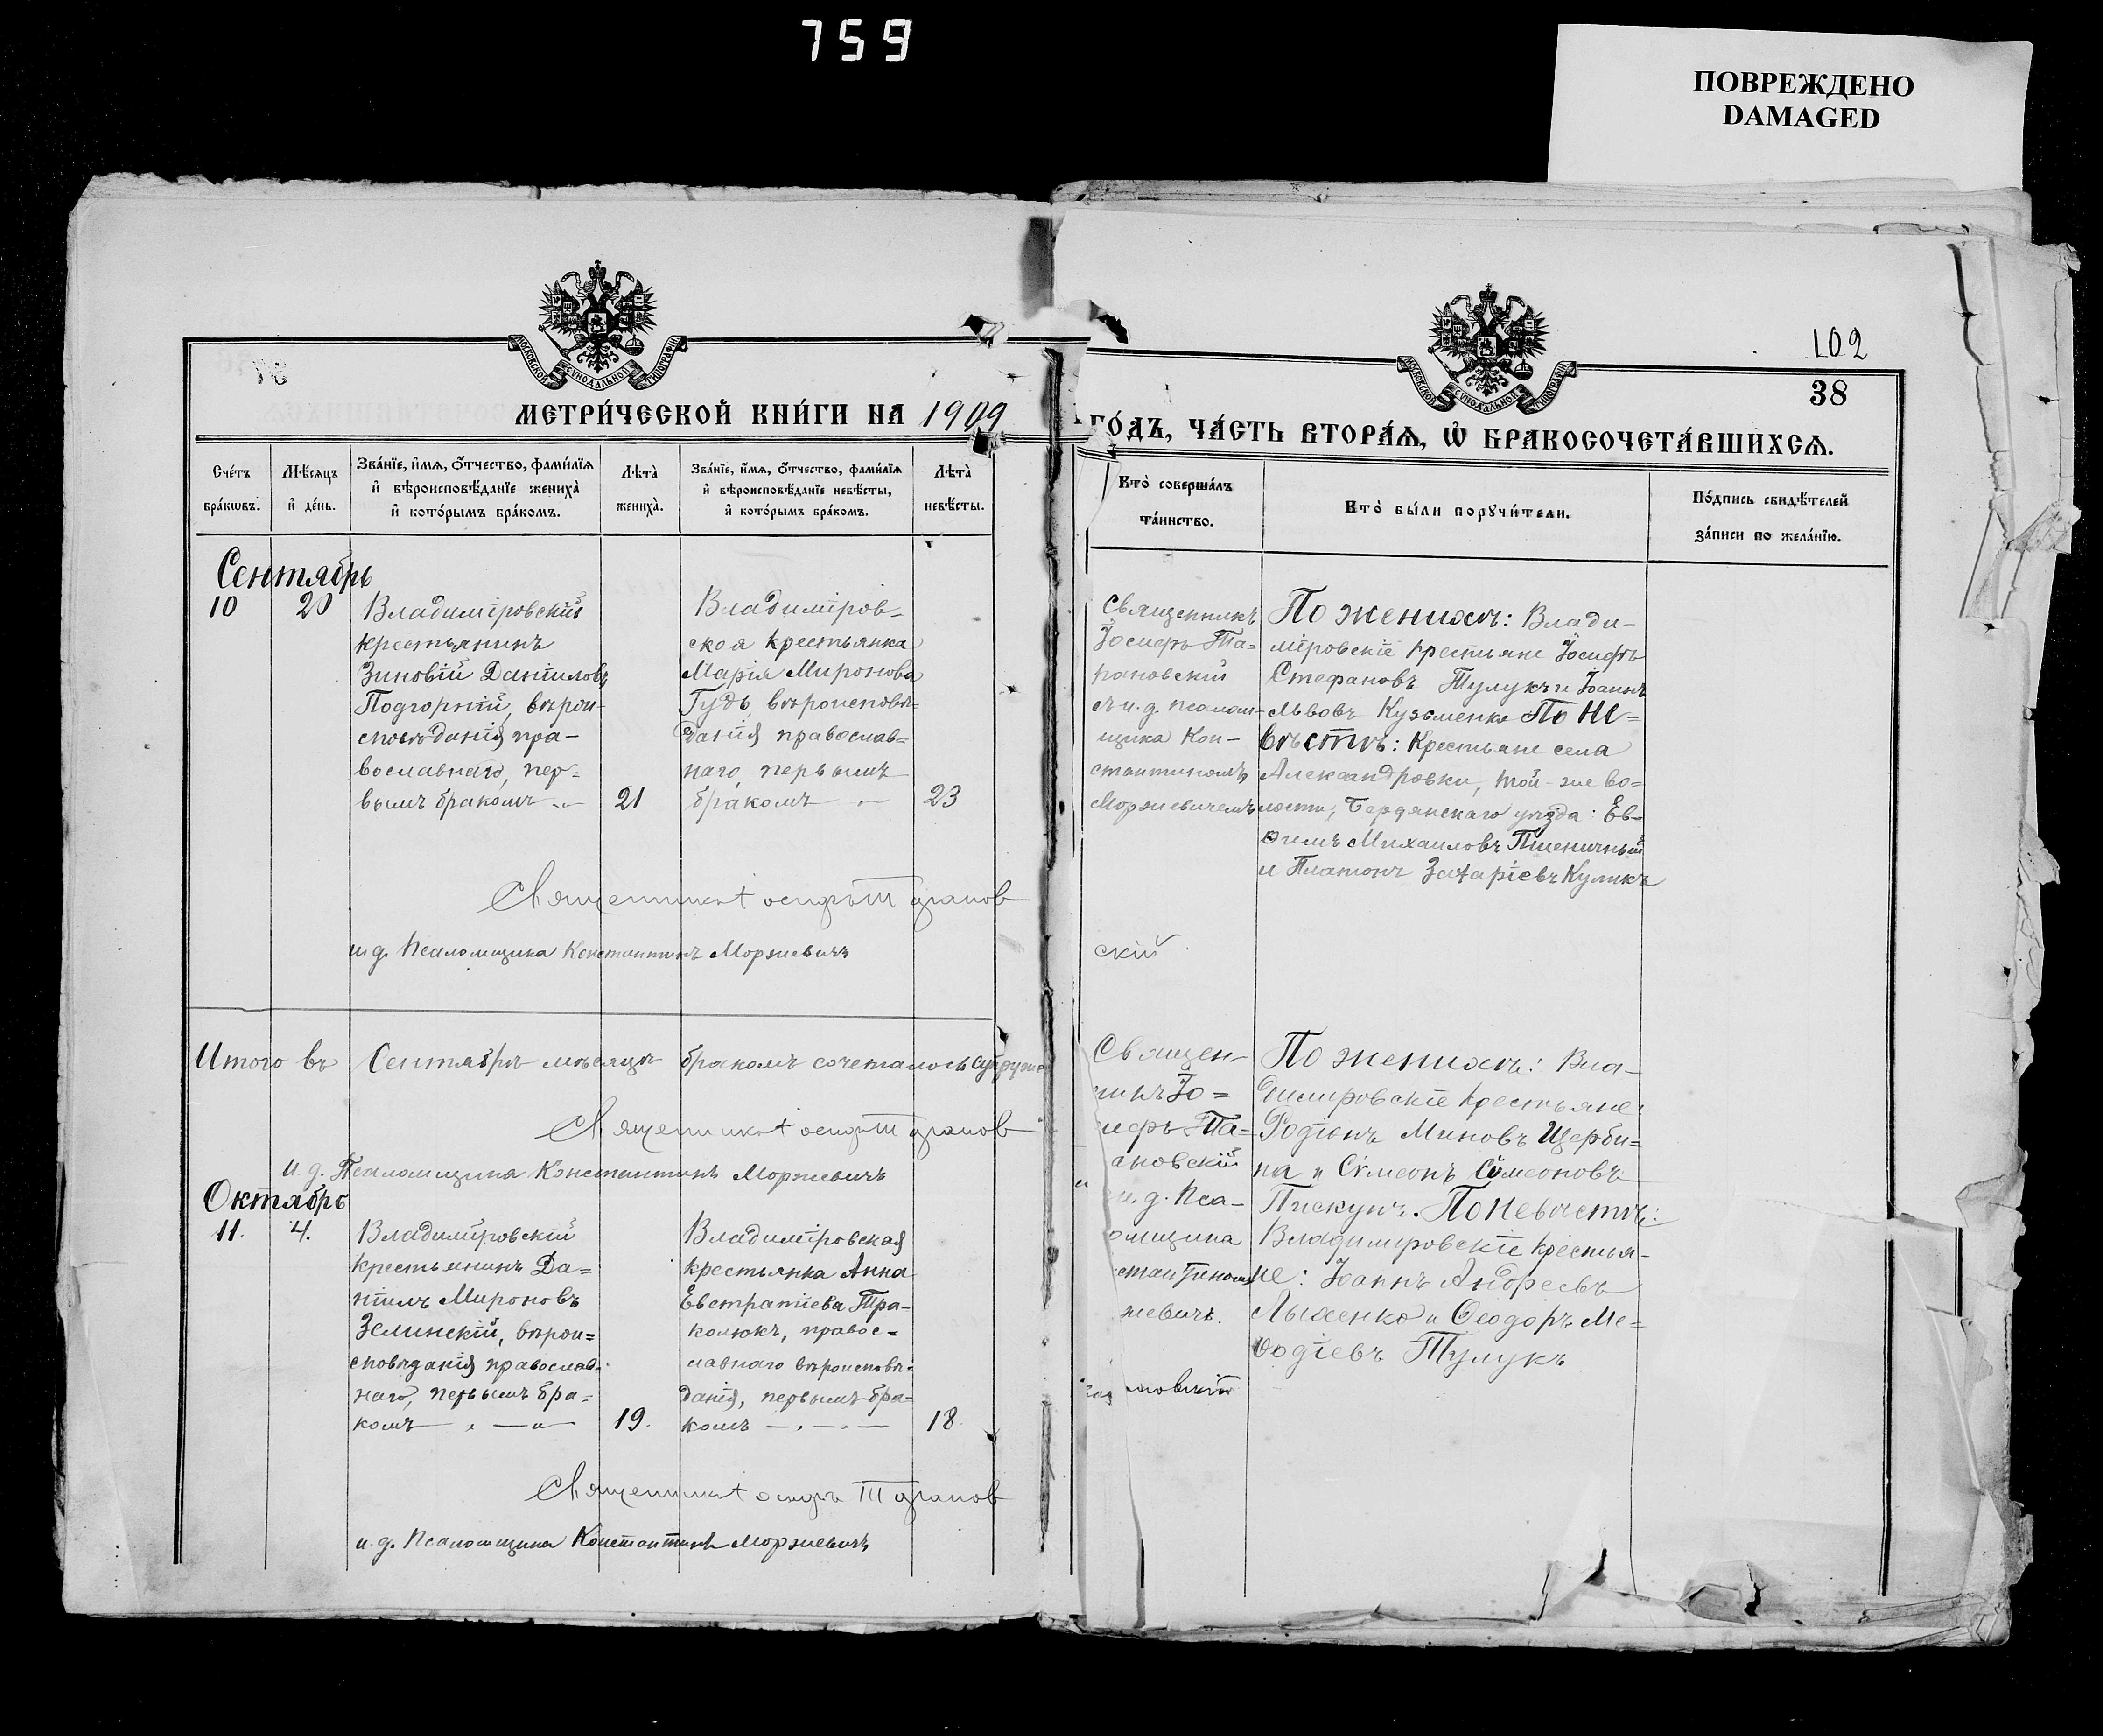 759
ПОВРЕЖДЕНО
DAMAGED
МОСКОВСКОЙ СУНОДАЛЬНОЙ ТИПОГРАФІИ
МОСКОВСКОЙ СУНОДАЛЬНОЙ ТИПОГРАФІИ
102
38
МЕТРИ́ЧЕСКОЙ КНИ́ГИ НА 1909
ГО́ДЪ, ЧА́СТЬ ВТОРА́Я, Ѡ БРАКОСОЧЕТА́ВШИХСЯ.
Сче́тъ
бра́кѡвъ.
Мѣ́сяцъ
и҆ де́нь.
Зва́нїе, и҆́мя, о҆́тчество, фами́лїя
и҆ вѣроисповѣ́данїе жениха̀
и҆ кото́рымъ бра́комъ.
Лѣта̀
жениха̀.
Зва́нїе, и҆́мя, о҆́тчество, фами́лїя
и҆ вѣроисповѣ́данїе невѣ́сты,
и҆ кото́рымъ бра́комъ.
Лѣта̀
невѣ́сты.
Кто̀ соверша́лъ
та́инство.
Кто̀ бы́ли порꙋчи́тели.
По́дпись свидѣ́телей
за́писи по жела́нїю.
Сентябрь
10
20
Владимiровскій
крестьянинъ
Зиновій Данiиловъ
Подгорный, вѣрои-
сповѣданія пра-
вославнаго, пер-
вымъ бракомъ
21
Владимiров-
ская крестьянка
Марія Миронова
Гудь, вѣроисповѣ-
данія православ-
наго, первымъ
бракомъ
23
Священникъ
Іосифъ Та-
рановскій
съ и. д. псалом-
щика Кон-
стантиномъ
Моржевичемъ
По женихѣ: Влади-
мiровскіе крестьяне Іосифъ
Стефановъ Тулукъ и Іоаннъ
Львовъ Кузьменко По не-
вѣстѣ: Крестьяне села
Александровки, той-же во-
лости, Бердянскаго уѣзда: Ев-
ѳимъ Михаиловъ Пшеничный
и Платонъ Захаріевъ Куликъ
Священникъ Іосифъ Таранов
скій
и д. Псаломщика Константинъ Моржевичъ
Итого въ Сентябрѣ мѣсяцѣ бракомъ сочеталось
Священникъ Іосифъ Таранов
и. д. Псаломщика Константинъ Моржевичъ
Октябрь
11.
4.
Владимiровскій
крестьянинъ Да-
ніилъ Мироновъ
Зелинскій, вѣрои-
сповѣданія православ-
наго, первымъ бра-
комъ
19.
Владимiровская
крестьянка Анна
Евстратіева Тра-
колюкъ, правос-
лавнаго вѣроисповѣ-
данія, первымъ бра-
комъ
18.
Священ-
никъ Іо-
ифъ Та-
ановскій
и. д. Пса-
омщика
стантиномъ
жевичъ.
По женихѣ: Вла-
димiровскіе крестьяне:
Родіонъ Миновъ Щерби-
на и Сѵмеонъ Сѵмеоновъ
Пискунъ. По невѣстѣ:
Владимiровскіе крестья-
не: Іоаннъ Андреевъ
Лыхенко и Ѳеодоръ Ме-
ѳодіевъ Тулукъ
новскій
Священникъ Іосифъ Таранов
и. д. Псаломщика Константинъ Моржевичъ